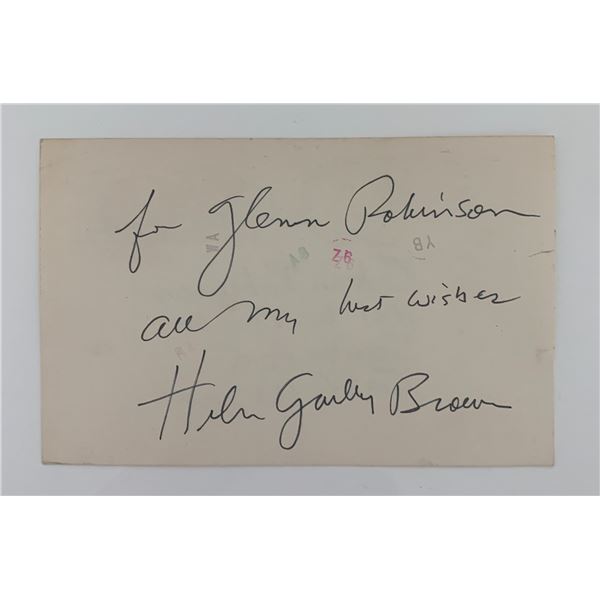 for Glenn Robinson
WA
AB
ZB
YB
all my best wishes
Helen Gurley Brown